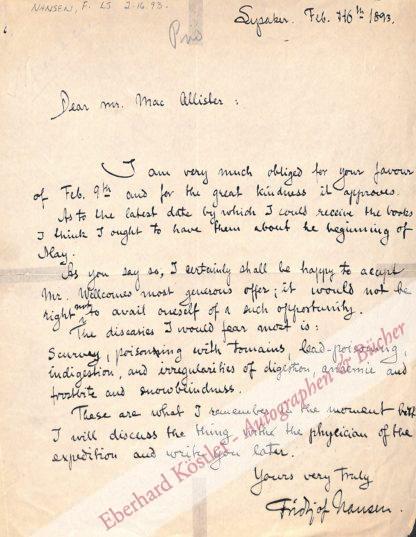 NANSEN, F. LS 2-16.93.
Lysaker. Feb. 16th 1893.
Dear Mr. Mac Allister:
I am very much obliged for your favour
of Feb. 9th and for the great kindness it approves.
As to the latest date by which I could receive the books
I think I ought to have them about he beginning of
May.
As you say so, I certainly shall be happy to accept
Mr. Wellcomes most generous offer; it would not be
right not to avail oneself of a such opportunity.
The diseases I would fear most is:
Scurvey, poisoning with tomains, lead-poisoning,
indigestion, and irregularities of digestion, anæmie and
frostbite and snowblindness.
These are what I remember in the moment but
I will discuss the thing with the physician of the
expedition and write you later.
Yours very truly
Fridtjof Nansen.
Eberhard Köstler - Autographen & Bücher